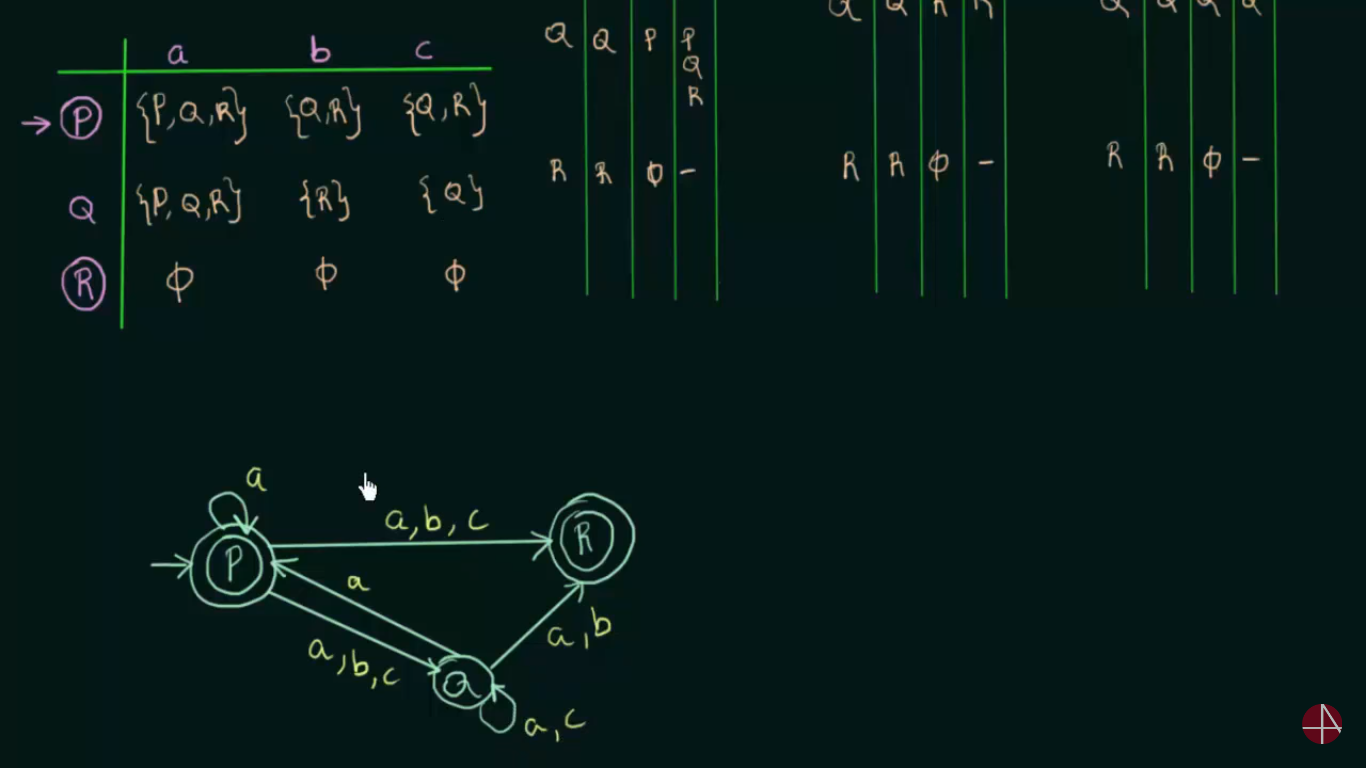 a b c
→ P {P,Q,R} {Q,R} {Q,R}
Q {P,Q,R} {R} {Q}
R ϕ ϕ ϕ
Q Q P P
Q
R
R R ϕ –
R R ϕ –
R R ϕ –
a
a, b, c
P
R
a
a, b, c
a, b
Q
a, c